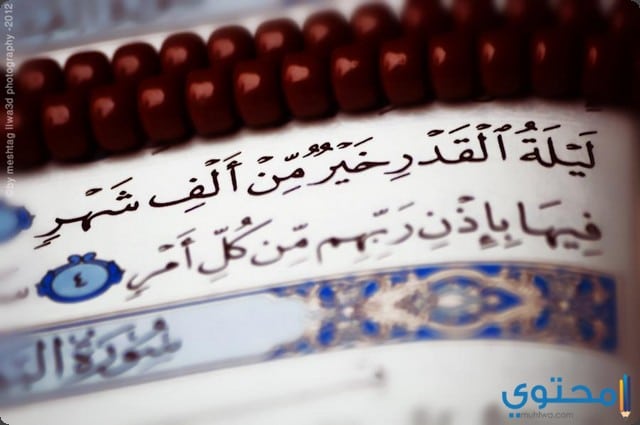 ©by meshtag llwa3d photography -2012
لَيْلَةُ ٱلْقَدْرِ خَيْرٌ مِّنْ أَلْفِ شَهْرٍ
فِيهَا بِإِذْنِ رَبِّهِم مِّن كُلِّ أَمْرٍ ٤
سُورَةُ
محتوي
muhtwa.com